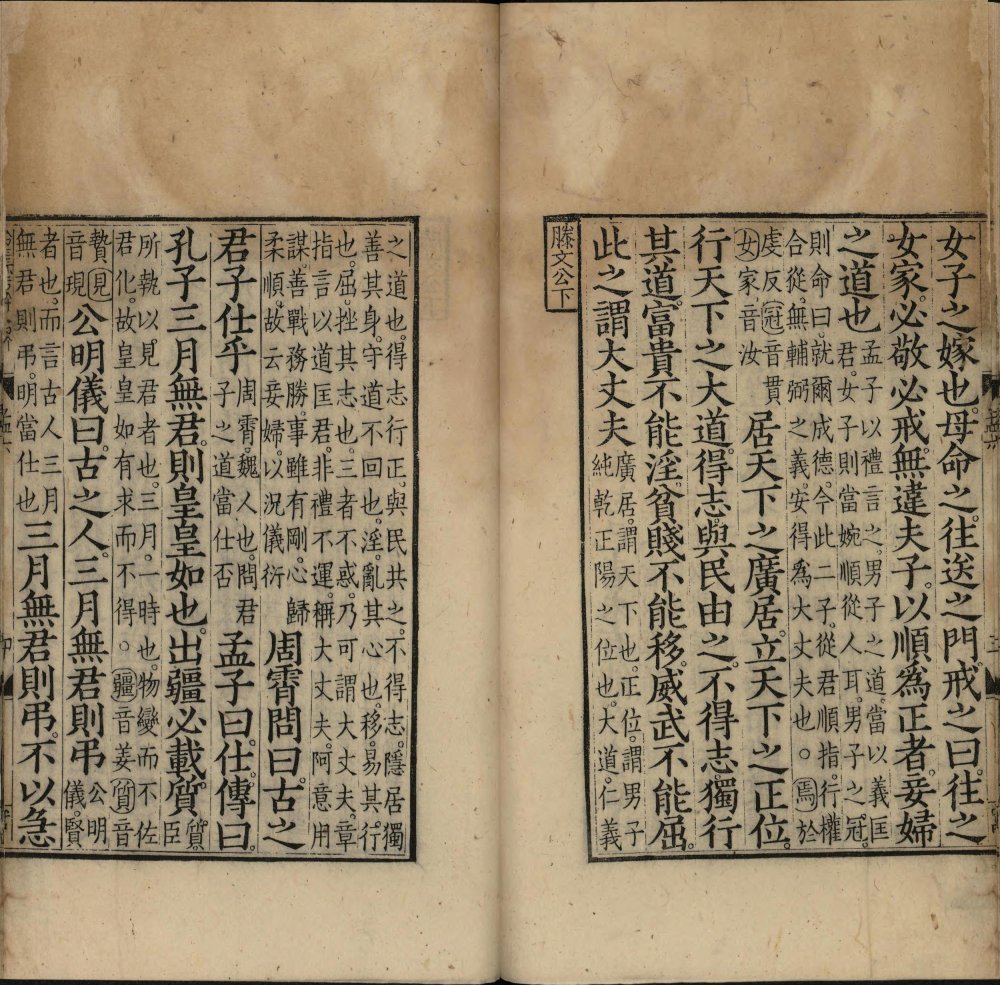 女子之嫁也。母命之。往送之門。戒之曰。往之
女家。必敬必戒。無違夫子。以順爲正者。妾婦
之道也
孟子以禮言之。男子之道當以義匡
君。女子則當婉順從人耳。男子之冠。
則命曰。就爾成德。今此二子。從君順指。行權
合從。無輔弼之義。安得爲大丈夫也。○焉於
虔反冠音貫
女家音汝
居天下之廣居。立天下之正位。
行天下之大道。得志。與民由之。不得志。獨行
其道。富貴不能淫。貧賤不能移。威武不能屈。
此之謂大丈夫
廣居。謂天下也。正位。謂男子
純乾正陽之位也。大道。仁義
滕文公下
之道也。得志行正。與民共之。不得志。隱居獨
善其身。守道不回也。淫。亂其心也。移。易其行
也。屈。挫其志也。三者不惑。乃可謂大丈夫。章
指言以道匡君。非禮不運。稱大丈夫。阿意用
謀。善戰務勝。事雖有剛。心歸
柔順。故云妾婦。以況儀衍
周霄問曰。古之
君子仕乎
周霄。魏人也。問君
子之道當仕否
孟子曰。仕。傳曰。
孔子三月無君。則皇皇如也。出疆必載質。
質。臣
所執以見君者也。三月。一時也。物變而不佐
君化。故皇皇如有求而不得。○疆音姜質音
贄見
音現
公明儀曰。古之人。三月無君則弔
公明
儀。賢
者也。而言古人三月
無君則弔。明當仕也
三月無君則弔。不以急